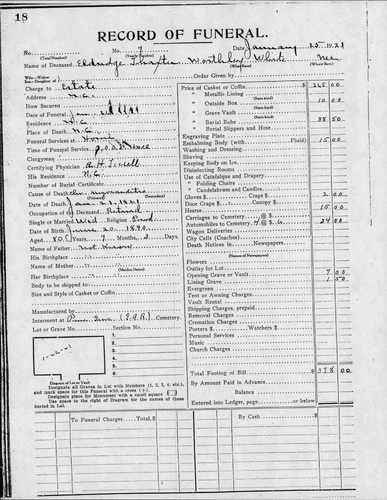 18
RECORD OF FUNERAL.
No. No. 7 Date January 25 1921
(Total Number) (Yearly Number)
Name of Deceased, Eldridge Thaxter Worthley White Me.
(What Race) (Where Born)
Wife—Widow
Son—Daughter of
Order Given by
Charge to Estate
Address N.G.
How Secured
Date of Funeral Jan.
Residence N.G.
Place of Death N.G.
Funeral Services at Home
Time of Funeral Service
Clergyman
Certifying Physician
His Residence N.G.
Number of Burial Certificate
Cause of Death Chr. Myocarditis
(Primary) (Secondary)
Date of Death Jan. 1921
Occupation of the Deceased Retired
Single or Married Wid Religion Prot
Date of Birth June 20. 1840
Aged 80 Years 7 Months 3 Days
Name of Father Not Known
His Birthplace
Name of Mother
(Maiden Name)
Her Birthplace
Body to be shipped to
Size and Style of Casket or Coffin
Manufactured by
Interment at Pine Grove Cemetery.
Lot or Grave No. Section No.
1
2
3
4
5
6
Diagram of Lot or Vault
Designate all Graves in Lot with Numbers (1, 2, 3, 4, etc.),
and mark space for this Funeral with a cross (+).
Designate place for Monument with a small square
Use space to the right of Diagram for the names of those
buried in Lot.
Price of Casket or Coffin 265 00
" Metallic Lining
(State kind)
" Outside Box 10 00
(State kind)
" Grave Vault
(State kind)
" Burial Robe 38 50
(State kind)
" Burial Slippers and Hose
Engraving Plate
Embalming Body (with Fluid) 15 00
Washing and Dressing
Shaving
Keeping Body on Ice
Disinfecting Rooms
Use of Catafalque and Drapery
" Folding Chairs
" Candelabrum and Candles
Gloves $ Cape $ 2 00
Door Crape $ Canopy $
Hearse 15 00
Carriages to Cemetery @ $
Automobiles to Cemetery 4 @ $ 6. 24 00
Wagon Deliveries
City Calls (Coaches)
Death Notices in Newspapers
(Names of Newspapers)
Flowers
Outlay for Lot
Opening Grave or Vault 7 00
Lining Grave 1 50
Evergreen
Tent or Awning Charges
Vault Rental
Shipping Charges, prepaid
Removal Charges
Cremation Charges
Porters $ Watchers $
Personal Services
Music
Church Charges
Total Footing of Bill $ 378 00
By Amount Paid in Advance
Balance
Entered into Ledger, page or below.
To Funeral Charges Total, $ By Cash $